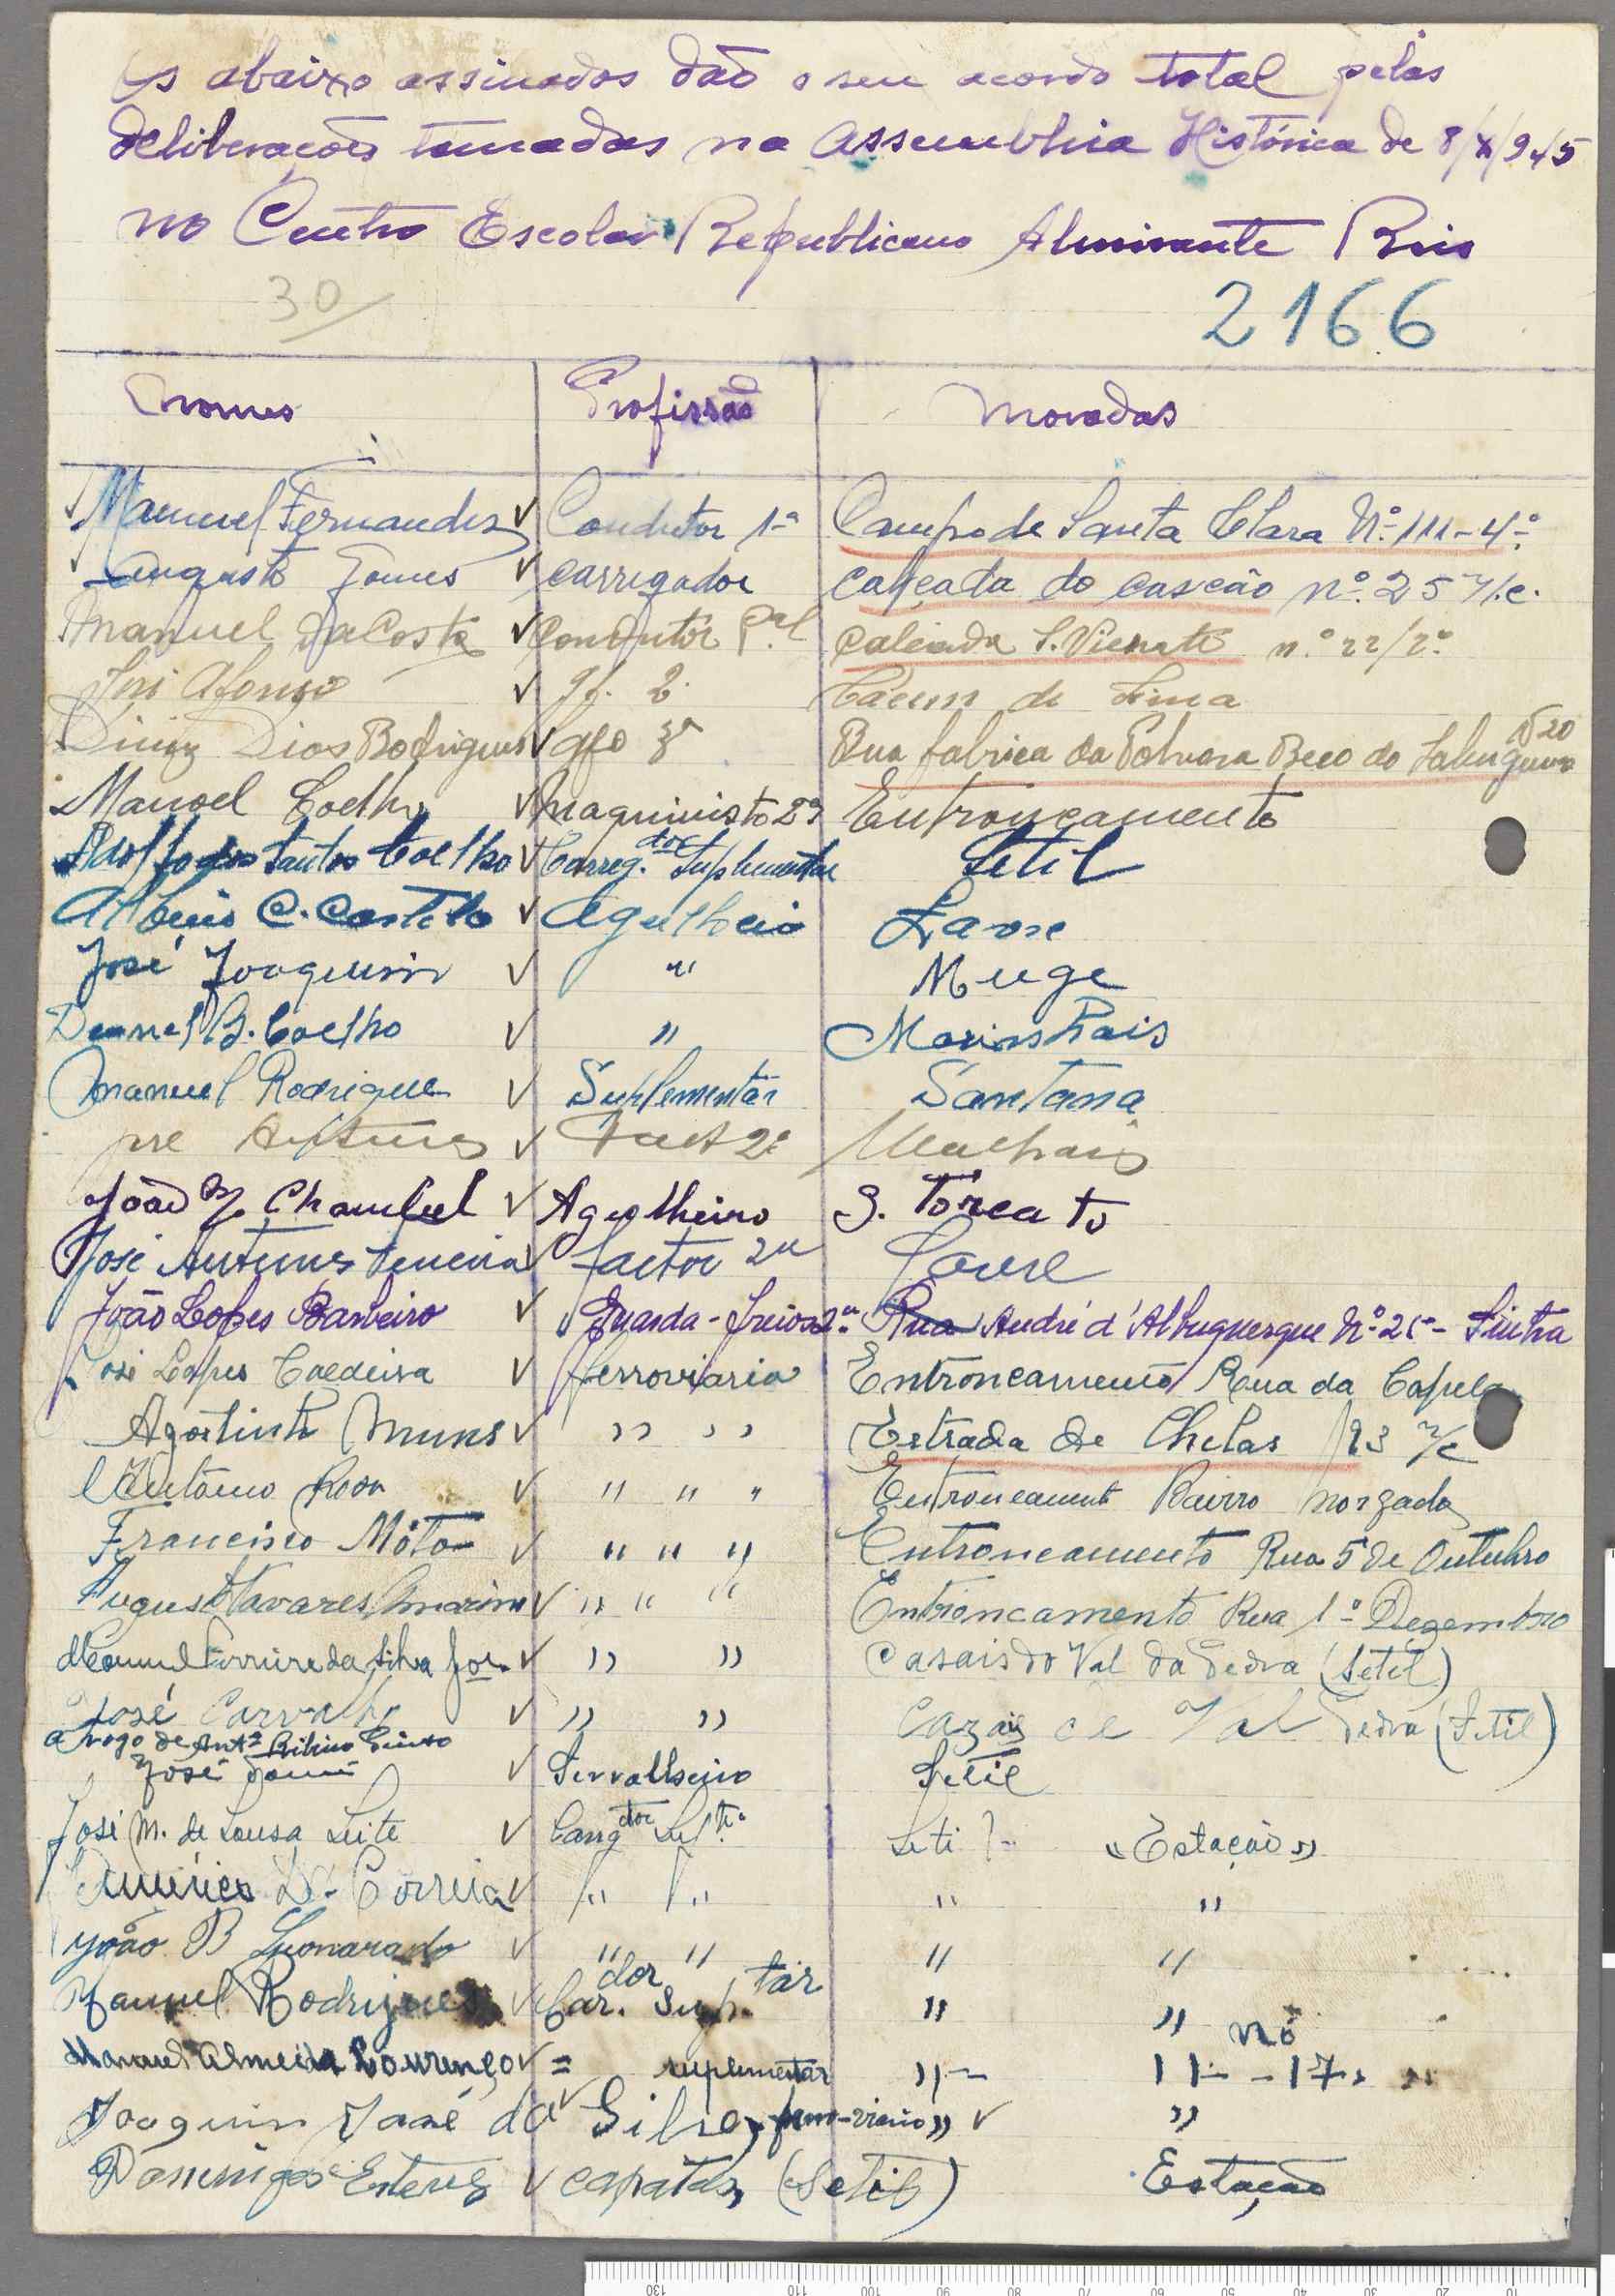 Os abaixo assinados dão o seu acordo total pelas
deliberações tomadas na Assembleia Histórica de 8/X/945
no Centro Escolar Republicano Almirante Reis
30
2166
Nomes Profissão Moradas
Manuel Fernandes Condutor 1ª Campo de Santa Clara Nº 111-4º
Augusto Gomes carregador calçata do cascão nº 25 r/c.
Manuel da Costa Condutôr P.al calçada S. Vicente nº 22/2º
José Afonso 2.
Diniz Dias Rodrigues Rua fabrica da Polvora Beco do Nº 20
Manoel Coelho Maquinista 2ª Entroncamento
Adolfo dos Santos Coelho Carreg.dor Suplementar Setil
Albino C. Castelo Agulheiro Lavre
José Joaquim " Muge
B. Coelho " Marinhais
Manuel Rodrigues Suplementár Santana
Fact 2ª
João Chambel Agulheiro S. Torcato
José Antunes factor 2ª Lavre
João Lopes Barbeiro Guarda-freios 2ª Rua André d'Albuquerque Nº 25 - Sintra
José Lopes Caldeira ferroviario Entroncamento Rua da Capela
Agostinho Nunes " " Estrada de Chelas 123 r/c
António Rosa " " " Entroncamento Bairro
Francisco Môta " " " Entroncamento Rua 5 de Outubro
Augusto Tavares " " " Entroncamento Rua 1º Dezembro
Manuel Ferreira da Silva " " Casais do Val da Pedra (Setil)
José Carvalho " " Cazais de Val Pedra (Setil)
a rogo de Antº
José Serralheiro Setil
José M. de Sousa Leite Carrgdor Setil - "Estação"
Américo Correia " " " "
João B Leonarado " " " "
Manuel Rodrigues Car.dor Sup.tar " "
Manuel Almeida Lourenço = suplementar " nº
11 - 17
Joaquim José da Silva, ferro-viario " "
Domingos Esteves capatas, (Setil) Estação